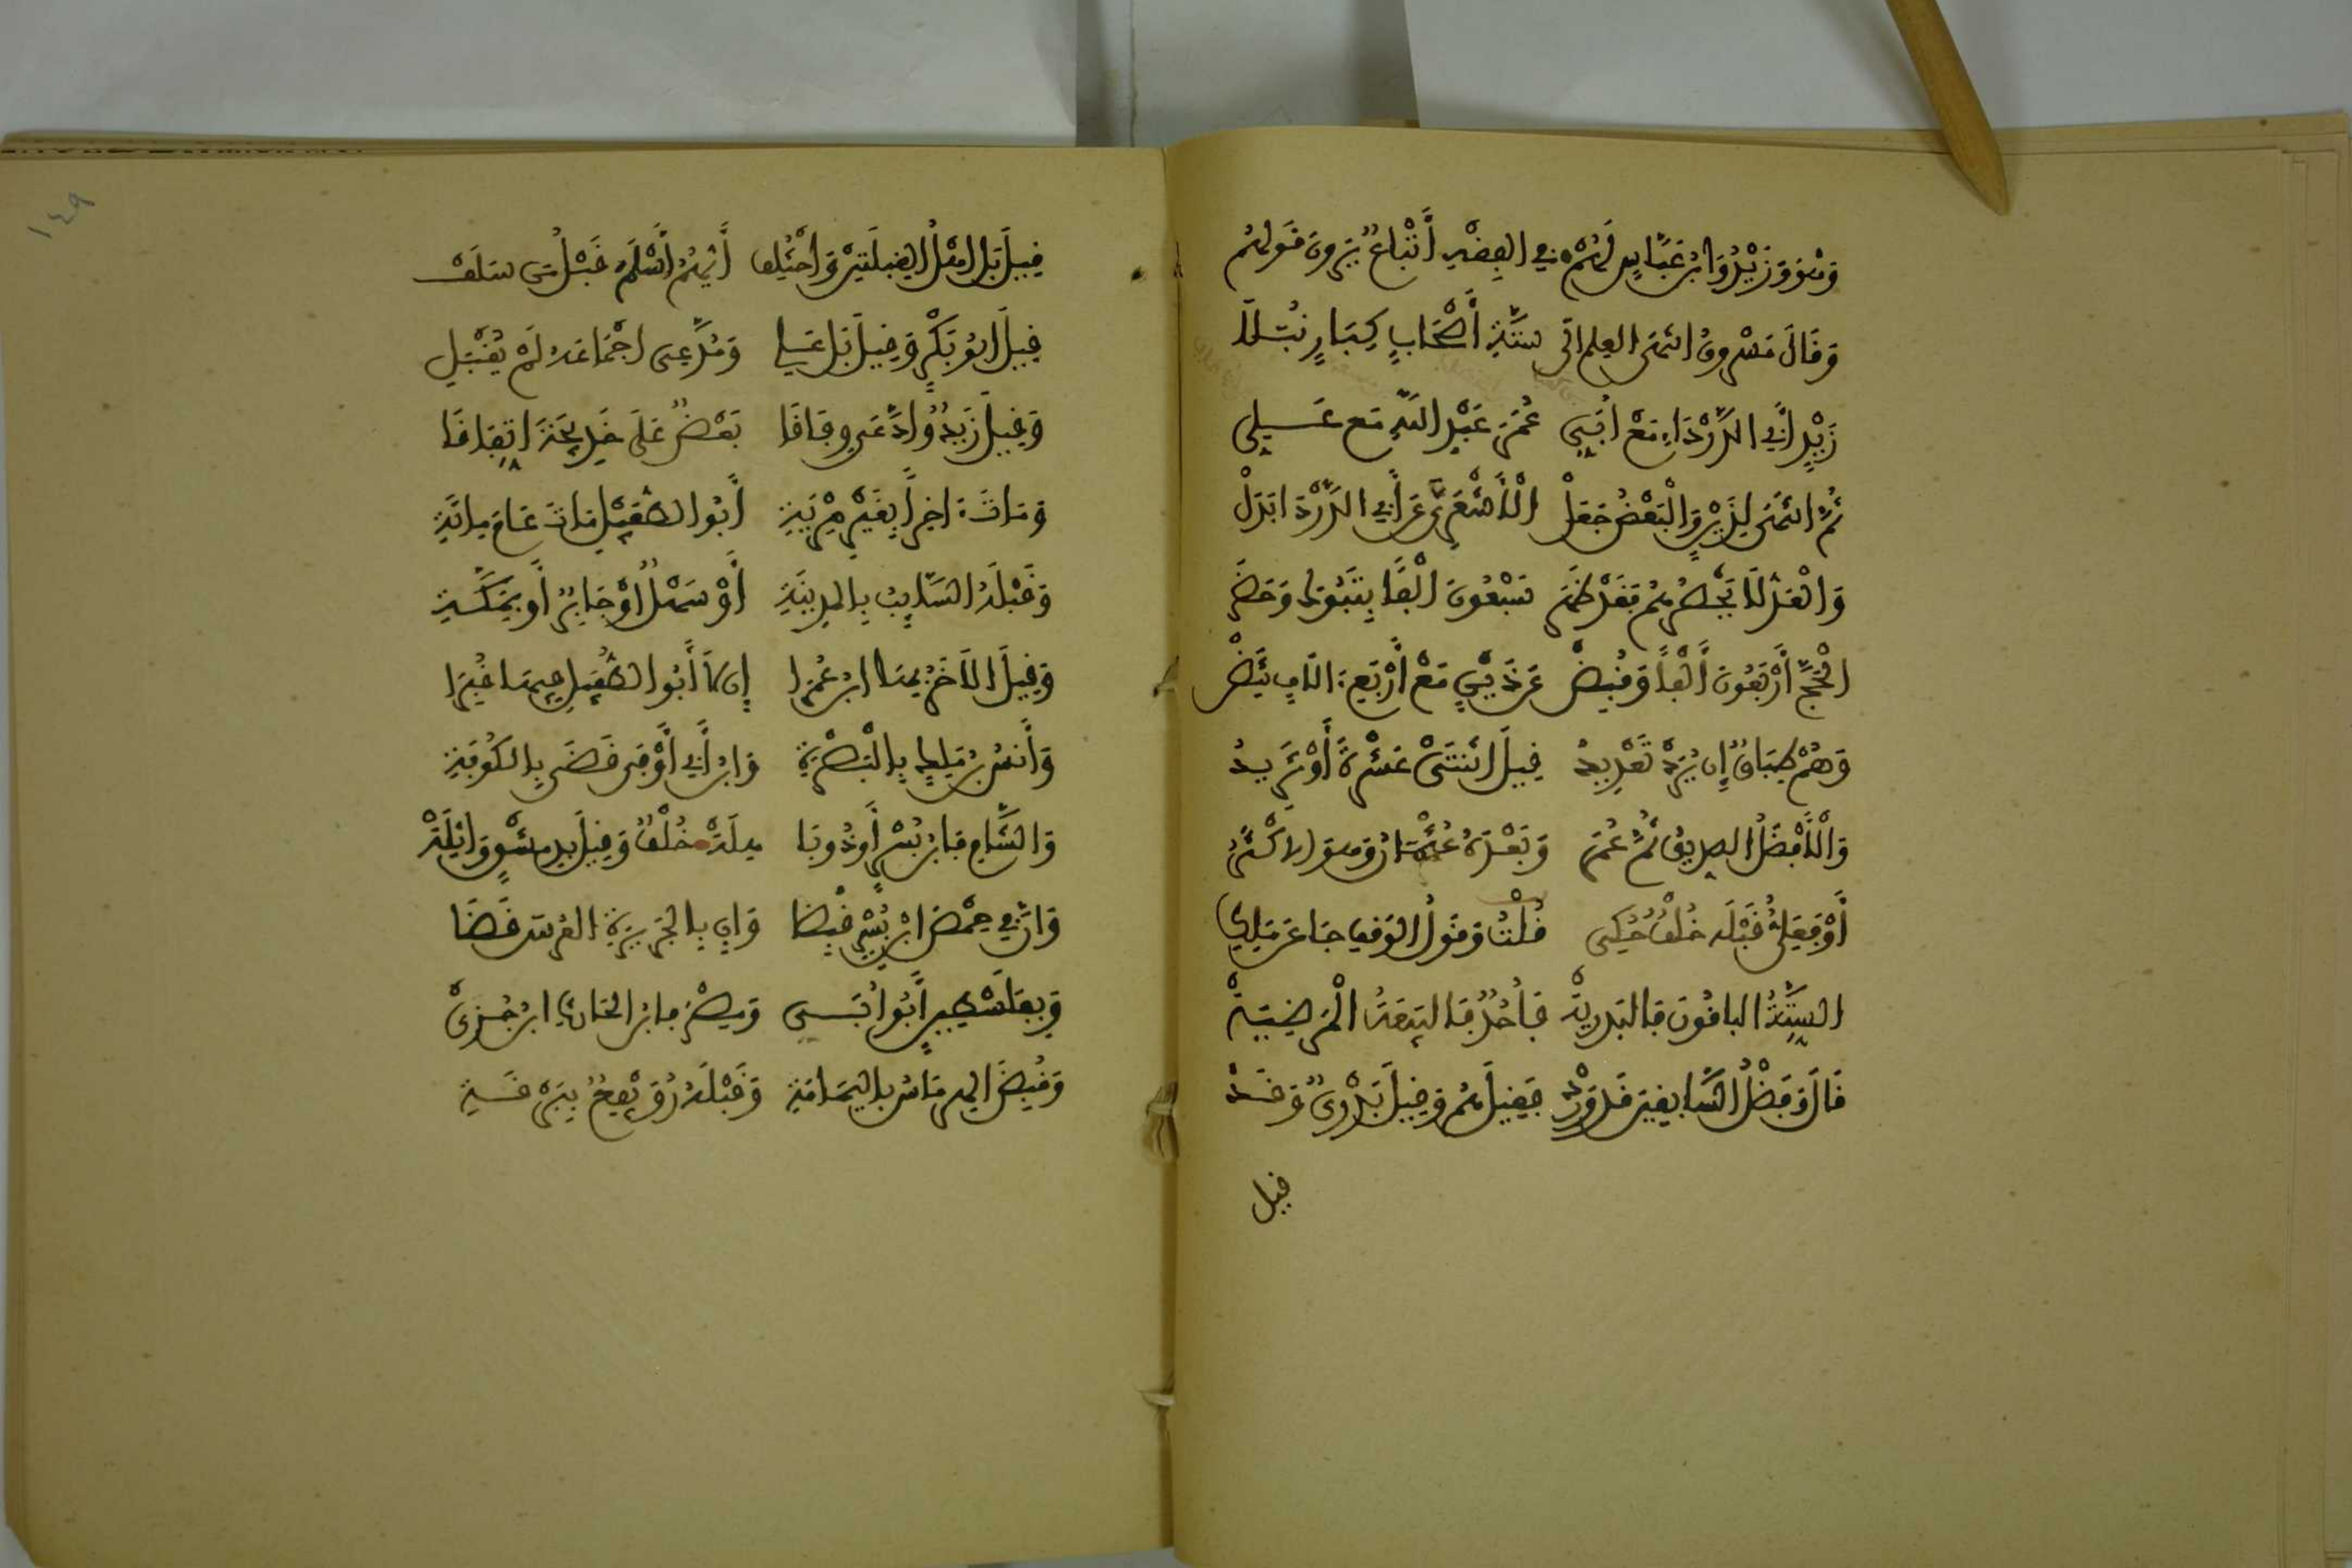 وَهْوَ وَزَيْدٌ وَابْنُ عَبَّاسٍ لَهُمْ في الفِقْهِ أَتْبَاعٌ يَرَوْنَ قَوْلَهُمْ
وَقَالَ مَسْرُوقُ انْتَهَى العِلمُ الَى سِتَّةِ أَصْحَابٍ كِبَارٍ نُبَلاَ
زَيْدٍ أَبِي الدَّرْدَاءِ مَعْ أُبَيِّ عُمَرَ عَبْدِ اللَّهِ مَع عَلِيِّ
ثُمَّ انْتَهَى لِذَيْنِ وَالْبَعْضُ جَعَلْ الْأَشْعَرِيَّ عَنْ أَبِي الدَّرْدَا بَدَلْ
وَالعَدُّ لاَ يَحْصُرُهُمْ فَقَدْ ظَهَرَ سَبْعُونَ الْفًا بِتَبُوكَ وَحَضَرْ
الْحَجَّ أَرْبَعُونَ أَلْفاً وَقُبِضْ عَنْ ذَيْنِ مَعْ أَرْبَعِ الَافٍ تَنِضّْ
وَهُمْ طِبَاقٌ إِنْ يُرَدْ تَعْدِيدُ قِيلَ اثْنَتَىْ عَشْرَةَ أَوْ تَزِيدُ
وَالْأَفْضَلُ الصديقُ ثُمَّ عُمَرُ وَبَعْدَهُ عُثْمَانُ وَهو الاكْثَرُ
أَوْ فَعَلِيٌّ قَبْلَه خُلْفٌ حُكِي قُلْتُ وَقَوْلُ الوَقْفِ جَا عَن مَالِكِ
السِّتَّةُ الباقُونَ فَالبَدرِيَّةْ فَأُحُدٌ فَالبَيعَةُ الْمَرضِيَّةْ
قَالَ وَفَضْلُ السَّابِقِينَ قَد وَرَدْ فَقِيلَ هُمْ وَقِيلَ بَدْرِيٌّ وَقَدْ
قيل
قِيلَ بَلَ اهْلُ القِبلَتَيْنِ وَاخْتُلِفْ أَيُّهُمُ أَسْلَمَ قَبْلُ مَن سَلَفْ
قِيلَ ابُو بَكْرٍ وَقِيلَ بَل عَلِي وَمُدَّعِي اجْمَاعَه لَمْ يُقْبَلِ
وَقِيلَ زَيدٌ وادَّعَى وِفَاقَا بَعْضٌ عَلَى خَدِيجَةَ اتِّفَاقَا
وَمَاتَ اخِراً بِغَيْرِ مِرْيَةِ أَبُوا الطُّفَيْلِ مَاتَ عَامَ مِائَةِ
وَقَبْلَهُ السَّايِبُ بِالمدِينَةِ أَوْ سَهْلٌ أوْ جَابِرٌ أَو بِمَكَّةِ
وَقِيلَ الآخَرُ بِهَا ابنُ عُمَرا إِن لَا أَبُوا الطُّفَيلِ فِيهَا قُبِرَا
وَأَنَسُ بنُ مَالِكٍ بِالْبَصْرَةِ وَابْنُ أَبِي أَوْفَى قَضَى بِالكُوفَةِ
وَالشَّامِ فَابنُ بُسْرٍ أَو ذُو بَا هِلَةْ خُلْفٌ وَقِيلَ بِدِمَشْقٍ وَاثِلَةْ
وَانَّ فِي حِمْصَ ابْنَ بُسْرٍ قُبِضَا وَانَّ بِالجَزِيرَةِ العُرسَ قَضَا
وَبِفَلَسْطِينٍ أَبُوا أُبَيِّ وَمِصْرَ فابنُ الحَارِثِ ابنِ جُزَيّْ
وَقُبِضَ الهِرمَاسُ بِاليَمَامَةِ وَقَبْلَهُ رُوَيْفِعٌ بِبَرْقَةِ
١٤٩